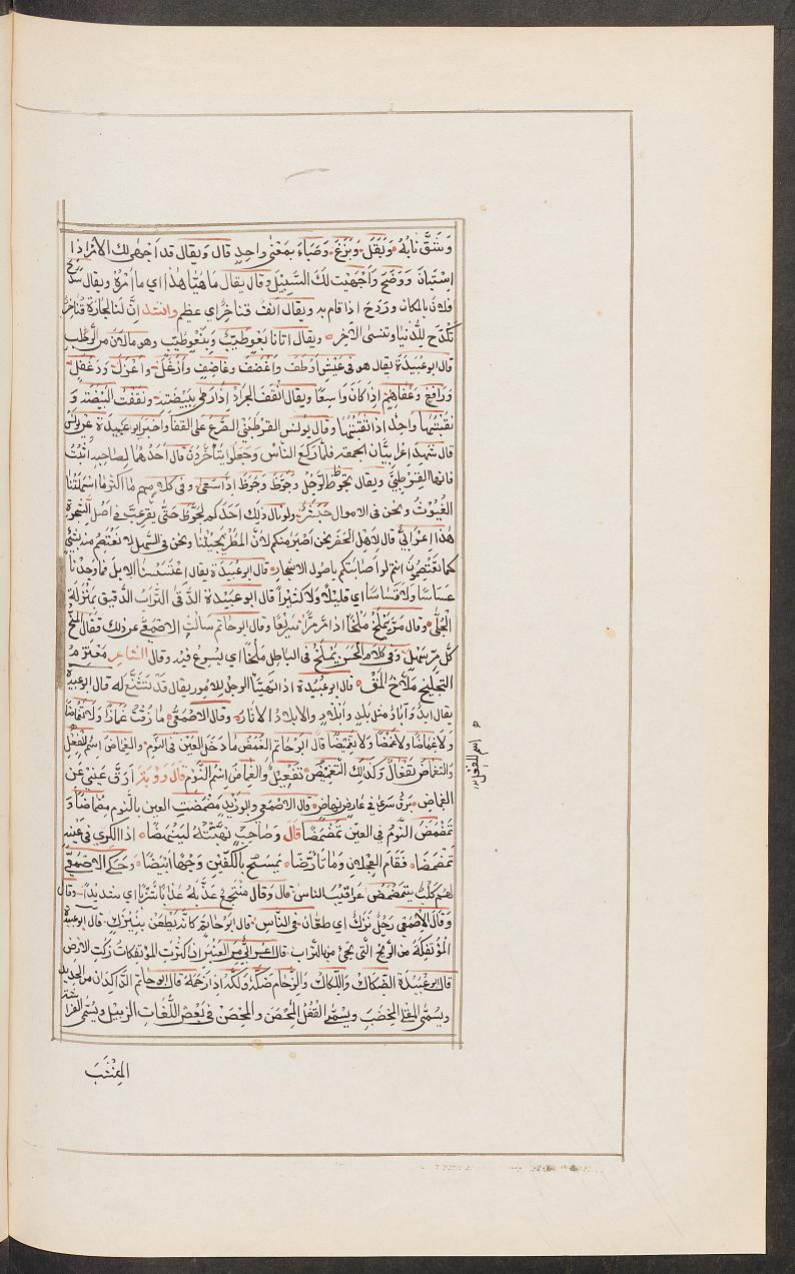 وَشَقَّ نَابُهُ وَبَقَلَ وَبَزَغَ وَصَبَاءَ بمَعْنًى واحدٍ قال ويقال قد اَجْهٰى لك الاَمْرُ اِذا
اِسْتَبانَ وَوَضَحَ وَاَجْهَيْت لَكَ السَّبِيْلَ وقال يقال مَا هَيَّا هٰذا اي ما اَمْرُهُ ويقال سَدَحَ
فلان بالمكان وردَحَ اذا قام به ويقال اَنْفٌ قناخِرٌ اي عظيم وانشد اِنَّ لَنا لجارَةً قُناخِرَه
تَكْدَح للدُّنيا وتنسى الآخره ويقال اتانا
قال ابو عُبَيدَة يقال هو في عَيْشٍ اَوْطَف واَغْضَفَ وغاضِفٍ واَرْغَل واغْزَلَ ودَغْفَلٍ
ورافِغٍ اِذا كانَ وَاسِعًا ويقال اَنْقَفَ الجرادُ اِذا رَمى ببَيْضَته ونَقَفْت البَيْضَة وَ
نقَبْتُهَا واحِدٌ اذا نَقَبْتُهَا وقال يونُس القَرْطَبٰى الصَّرْع على القفا واَخْبَر ابو عبيدة عن يونُس
قال شَهِدَ اِعرابيَّان الجمعة فلمّا رَكَعَ النّاسُ وَجَعَلوا يَتَأخَّرونَ قال اَحَدُهُما لِصاحِبِه اثْبُتْ
فانها القَرْطبٰى ويقال الرَّجُلُ اِذا سَعٰى وفي كلامهم مَا اكثر ما اسْتَمْلَتْنا
الغُيُوْثُ ونحن في الاموال ولو نال ذلك اَحَدَكم حَتّٰى يقرعَبَّ في اَصْل الشّجرة
هٰذا اعرابيٌّ قال لاَهْل الحَضَر نحن اَصْبَر منكم لانَّ المَطَرَ يَجِيْئنا ونحن في السّهل لا نَعْتَصِمُ منه بشئ
كما تَعْتَصِمُوْنَ انتم لو اَصَابَتْكم باصُول الاشجار قال ابو عبيدة يقال اعْتَسَسْنا الابل فما وَجَدْنا
عَسَاسًا وَلا قَسَاسًا اي قليلًا وَلا كثيرًا قال ابو عبيدة الدُّقٰى التُّرابُ الدَّقيق بمَنْزِلة
الجُلّٰى وقال مَرَّ يَمْلَخ مَلْخًا اذا مَرَّ مَرًّا سَرِيعًا وقال ابو حاتم سَالْتُ الاَصمَعِيَّ عن ذلك فَقَال المَلْخُ
كلُّ مرٍّ سَهْلٍ وفي كلام الحَسَن يَمْلَخُ في الباطِلِ مَلْخًا اي يُسْرِعُ فيه وقال الشاعِر مُعْتَزِمُ
التجليخ مَلاخُ المَلَقْ قال ابو عُبَيْدة اذا تَهَيَّأ الرجل للامور يقال قَدْ تَشَنَّع له قال ابو عبيدة
يقال ابَدٌ وآبَادٌ مثل بَلَدٍ وأَبْلادٍ والابلاد الآثار وقال الاصْمَعِيّ ما ذُقْتُ غَمَاضًا وَلا تَغْمَاضًا
وَلا غِمَاضًا وَلا غَمْضًا وَلا تَغْمِيْضًا قال ابو حاتم الغَمْضُ ما دَخَلَ العَيْنَ في النَّوْم والغِمَاض اِسْم للفِعْل
والتَّغْمَاضُ تَفْعَالٌ وَكَذلِكَ التَّغْمِيْضُ تَفْعِيْلٌ والغِمَاضُ اِسْمُ النَّوْم قال رؤبة اَرَّقَ عَيْنَىَّ عَن
الغِمَاضِ بَرْقٌ سَرٰى في عَارِضٍ نهاضِ قال الاَصْمَعي وابو زيدٍ مَضْمَضَتِ العين بالنّوم مِضْمَاضًا وَ
تَمَضْمَضَ النَّومُ في العين تَمَضْمُضًا قال وَصَاحِبٍ نَبَّهْتُهُ لِيَنْهَضَا اذا الكرى في عَيْنِه
تَمَضْمَضَا فَقَامَ عَجْلانَ وَمَا تَأرَّضَا يَمْسَحُ بالكَفَّينِ وَجْهًا اَبْيَضَا وحكى الاَصْمَعي
لهُم كَلْبٌ يتمَضْمَضُ عَراقيْبَ الناس قال وقال مُنْتَجِع عَذّبَهُ عَذابًا شَزْرًا اي شديدًا وقال
وَقَالَ الأَصْمَعِي رَجُلٌ نُزَكٌ اي طعَّان في النّاس قال ابو حاتم كانّه يَطْعن بنَيْزَك قال ابو عبيدة
المؤتفكة من الرّيْح الَّتي تجئ بالتراب قال اعرابيٌّ من العَنْبر اذا كثُرَت المؤتفكات زكَت الارض
قال ابو عُبَيْدة الضكاك واللّكاك والزّحام ضَكَّهُ وَلَكَّهُ اِذا زَحَمَهُ قال ابو حاتم من الحديد
ويسمّى المِقلى المِحْضَب ويسمّى القُفْل المِحْصَن والمِحْصَن في بَعْض اللّغات الزبيل ويُسَمّى الفراش
اسم للفعل
المِنْثَبَ